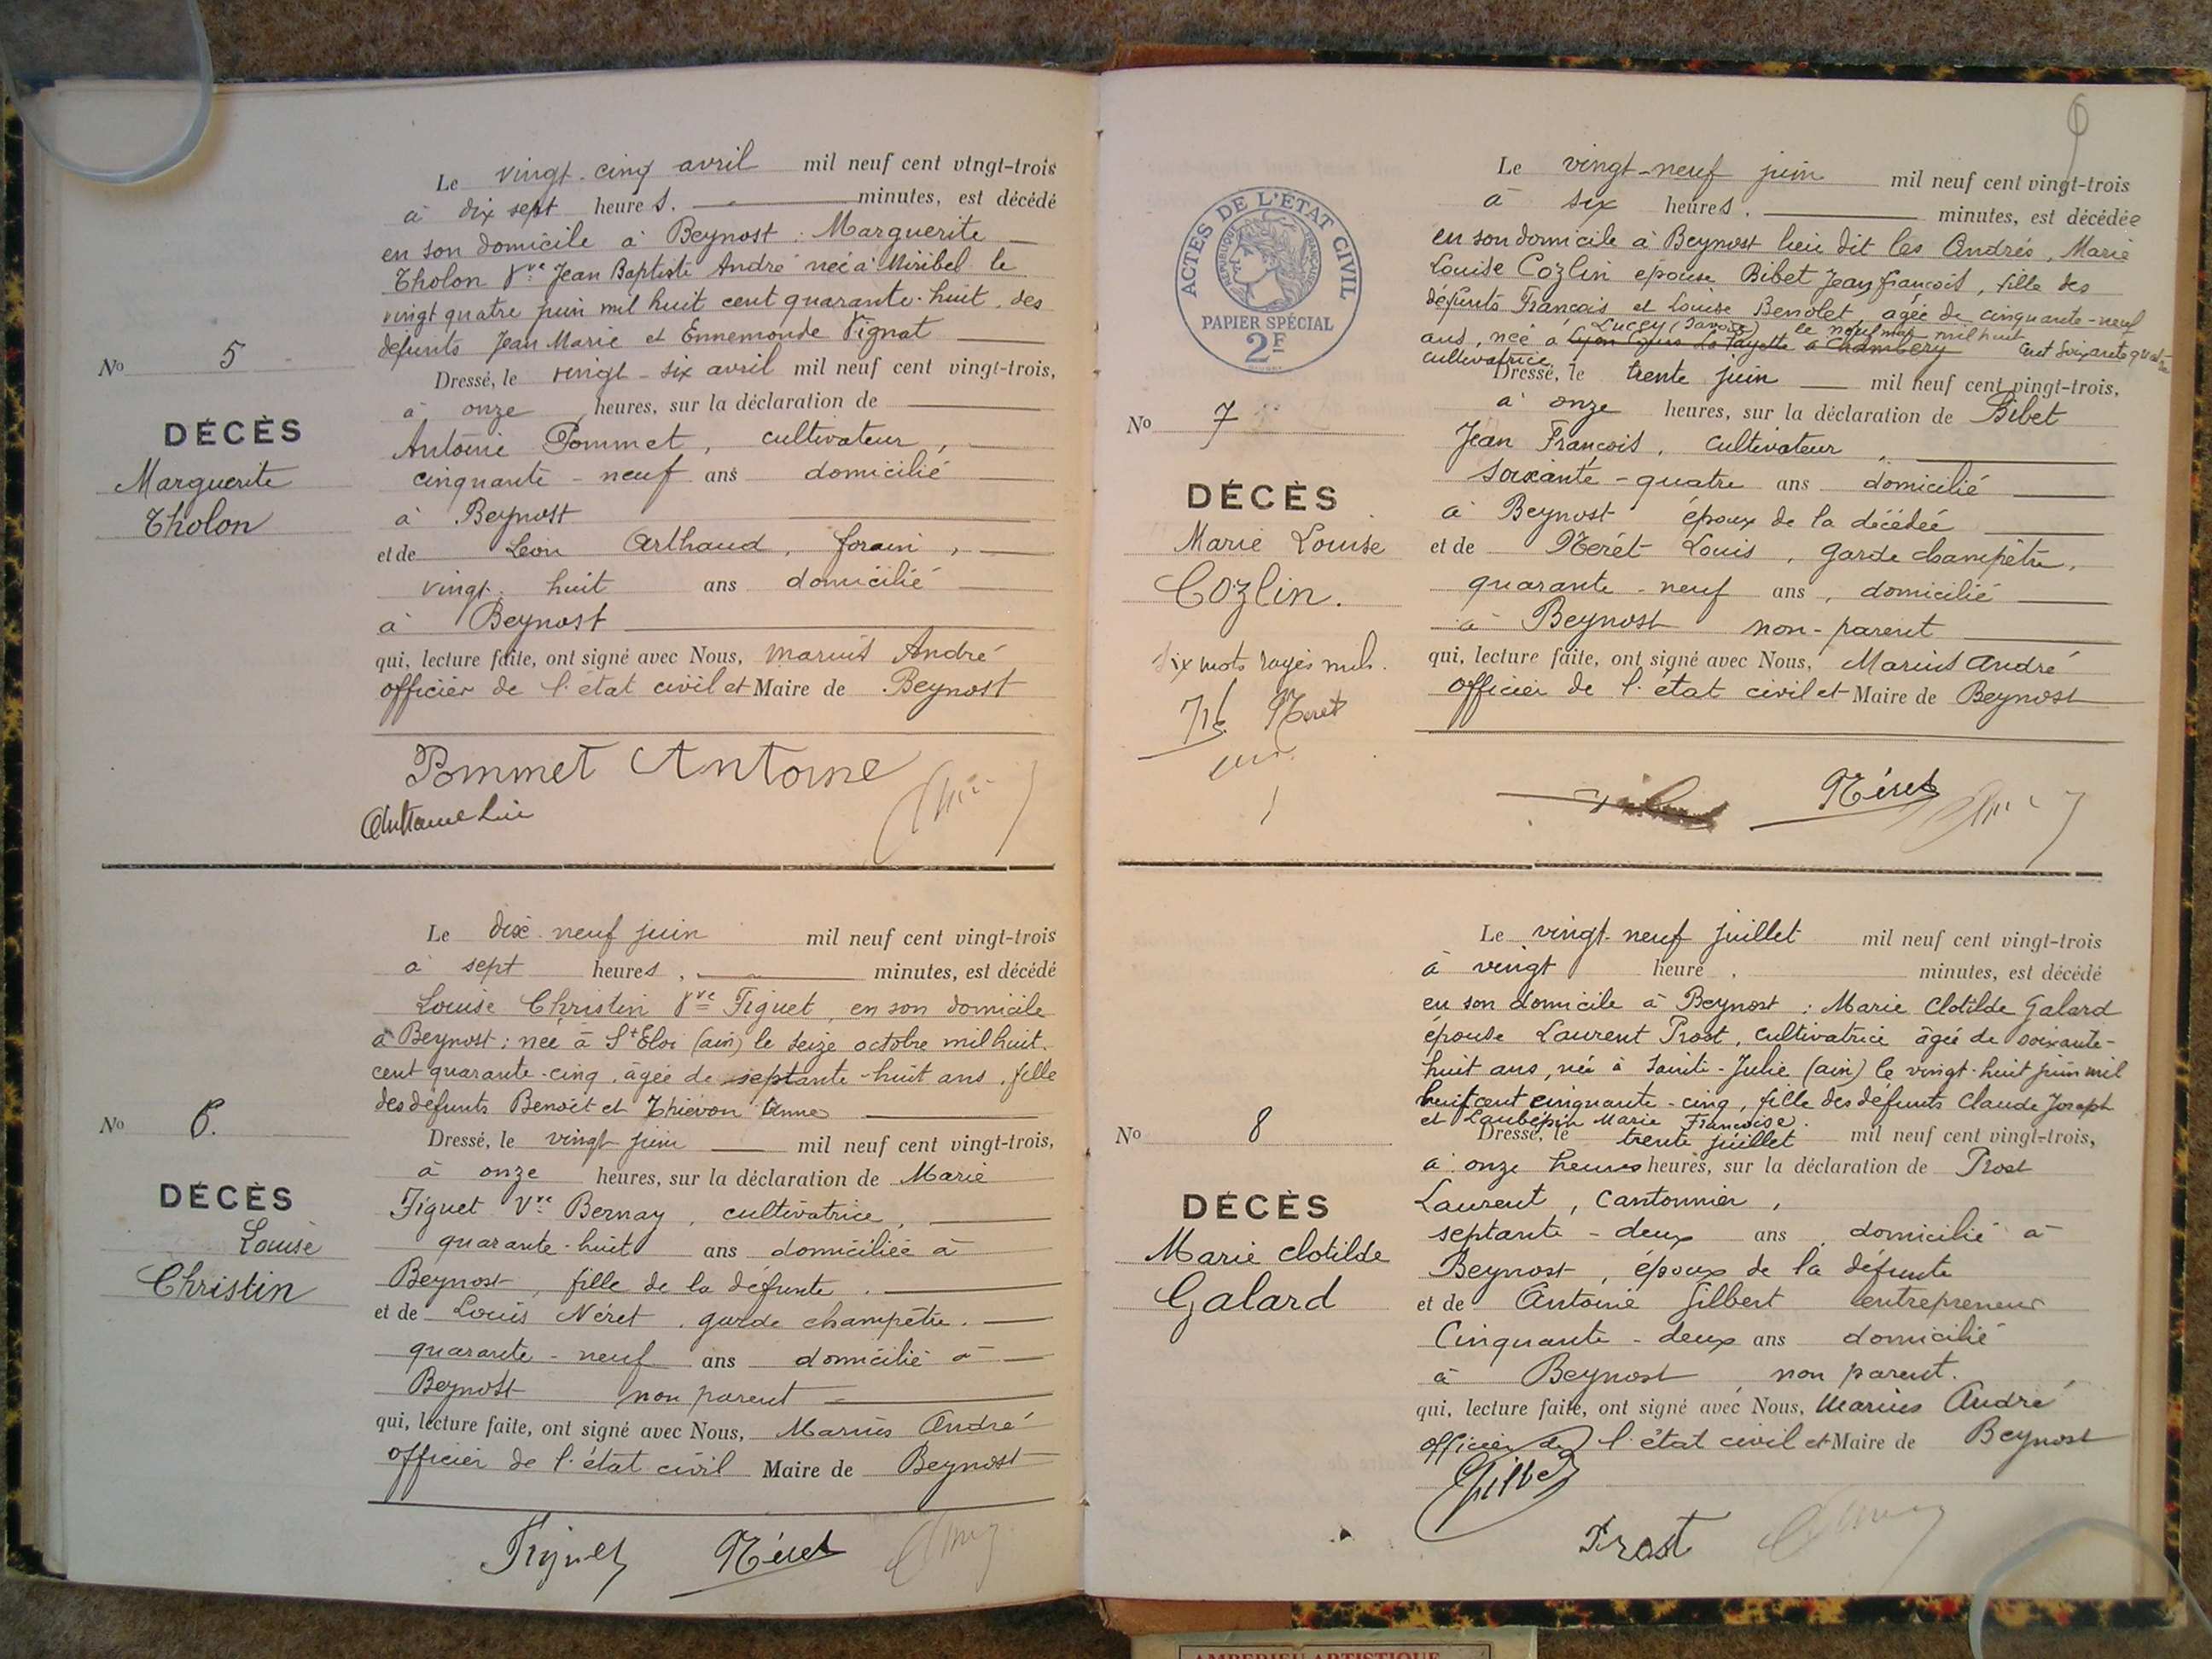 Le vingt-cinq avril mil neuf cent vingt-trois
à dix sept heures. minutes, est décédé
en son domicile à Beynost : Marguerite
Tholon Vve Jean Baptiste André née à Miribel le
vingt quatre juin mil huit cent quarante-huit, des
défunts Jean Marie et Ennemonde Vignat
No 5
Dressé, le vingt-six avril mil neuf cent vingt-trois,
à onze heures, sur la déclaration de
DÉCÈS
Antoine Pommet, cultivateur,
Marguerite
cinquante-neuf ans domicilié
Tholon
à Beynost
et de Léon Arthaud, forain,
vingt-huit ans domicilié
à Beynost
qui, lecture faite, ont signé avec Nous, Marius André
officier de l'état civil et Maire de Beynost
Pommet Antoine
Le dix-neuf juin mil neuf cent vingt-trois
à sept heures, minutes, est décédé
Louise Christin Vve Figuet, en son domicile
à Beynost ; née à St Eloi (ain) le seize octobre mil huit-
cent quarante-cinq, âgée de septante-huit ans, fille
des défunts Benoît et Thiévon Anne
No 6.
Dressé, le vingt juin mil neuf cent vingt-trois,
à onze heures, sur la déclaration de Marie
DÉCÈS
Figuet Vve Bernay, cultivatrice,
Louise
quarante-huit ans domiciliée à
Christin
Beynost, fille de la défunte.
et de Louis Néret, garde champêtre.
quarante-neuf ans domicilié à
Beynost non parent
qui, lecture faite, ont signé avec Nous, Marius André
officier de l'état civil Maire de Beynost
Figuet Néret
6
ACTES DE L'ÉTAT CIVIL
RÉPUBLIQUE FRANÇAISE
PAPIER SPÉCIAL
2F
Le vingt-neuf juin mil neuf cent vingt-trois
à six heures. minutes, est décédée
en son domicile à Beynost lieu dit les Andrés, Marie
Louise Cozlin épouse Bibet Jean françois, fille des
défunts François et Louise Benolet, âgée de cinquante-neuf
Lucey (Savoie) le neuf mai mil huit
ans, née à Lyon Cours La Fayette à Chambéry cent soixante quatre
cultivatrice
Dressé, le trente juin mil neuf cent vingt-trois,
à onze heures, sur la déclaration de Bibet
No 7
Jean François, cultivateur,
soixante-quatre ans domicilié
DÉCÈS
à Beynost époux de la décédée
Marie Louise
et de Néret Louis, garde champêtre,
Cozlin.
quarante-neuf ans, domicilié
à Beynost non-parent
Six mots rayés nuls.
qui, lecture faite, ont signé avec Nous, Marius André
officier de l'état civil et Maire de Beynost
Néret
Néret
Le vingt-neuf juillet mil neuf cent vingt-trois
à vingt heure. minutes, est décédé
en son domicile à Beynost : Marie Clotilde Galard
épouse Laurent Prost, cultivatrice âgée de soixante-
huit ans, née à Sainte-Julie (ain) le vingt-huit juin mil
huit cent cinquante-cinq, fille des défunts Claude Joseph
et Laubépin Marie Françoise.
No 8
Dressé, le trente juillet mil neuf cent vingt-trois,
à onze heures heures, sur la déclaration de Prost
DÉCÈS
Laurent, Cantonnier,
Marie Clotilde
septante-deux ans, domicilié à
Beynost, époux de la défunte
Galard
et de Antoine Gilbert entrepreneur
Cinquante-deux ans domicilié
à Beynost, non parent.
qui, lecture faite, ont signé avec Nous, Marius André
officier de l'état civil et Maire de Beynost
Gilbert
Prost
AMBERIEU ARTISTIQUE